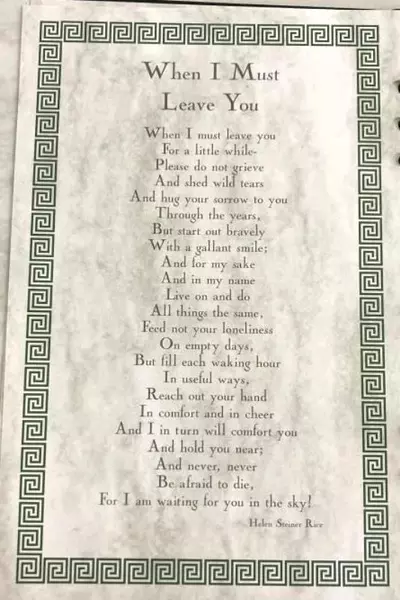 When I Must
Leave You
When I must leave you
For a little while-
Please do not grieve
And shed wild tears
And hug your sorrow to you
Through the years,
But start out bravely
With a gallant smile;
And for my sake
And in my name
Live on and do
All things the same,
Feed not your loneliness
On empty days,
But fill each waking hour
In useful ways,
Reach out your hand
In comfort and in cheer
And I in turn will comfort you
And hold you near;
And never, never
Be afraid to die,
For I am waiting for you in the sky!
Helen Steiner Rice